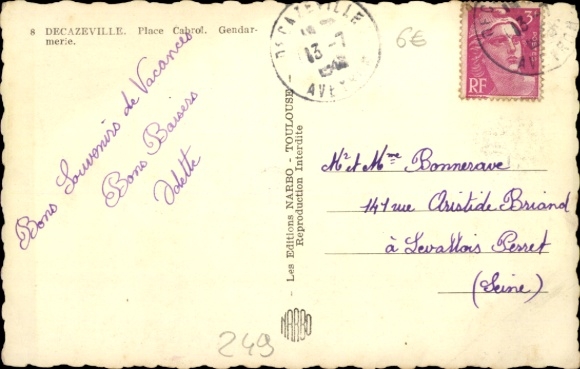 8 DECAZEVILLE. Place Cabrol. Gendar-
merie.
Bons Souvenirs de Vacances
Bons Baisers
Odette
- Les Editions NARBO - TOULOUSE -
Reproduction Interdite
NARBO
DECAZEVILLE
13-7
AVEYRON
6€
RF
Mr et Mme Bonnerave
141 rue Aristide Briand
à Levallois Perret
(Seine)
249